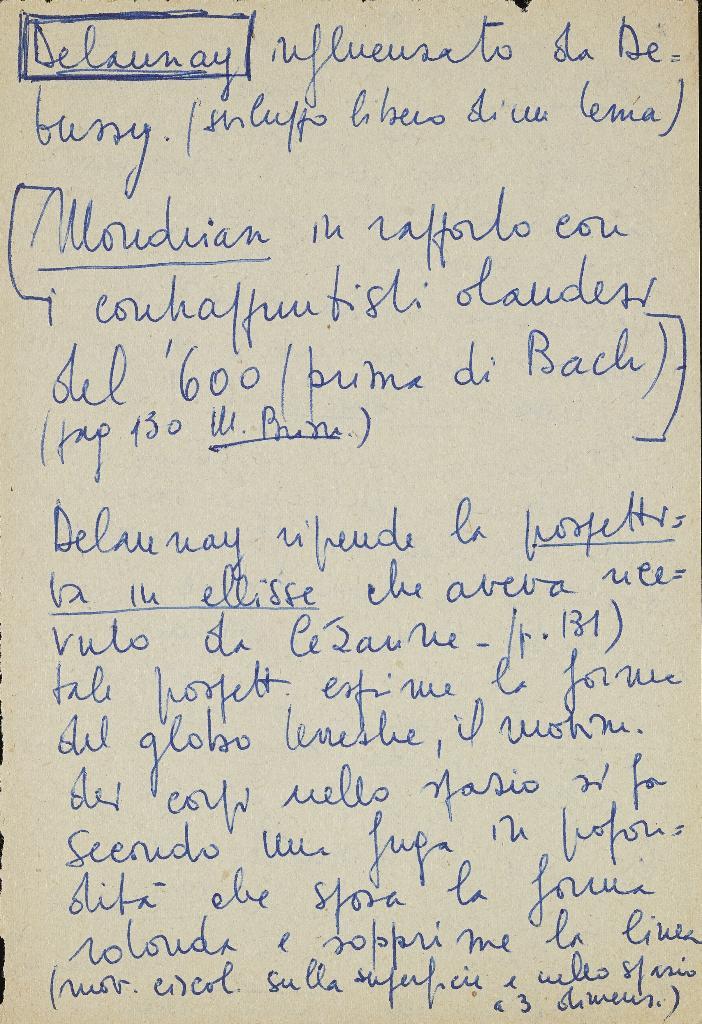 Delaunay influenzato da De=
bussy. (sviluppo libero di un tema)
Mondrian in rapporto con
i contrappuntisti olandesi
del '600 (prima di Bach)
(pag 130 M.)
Delaunay riprende la prospetti=
va in ellisse che aveva rice=
vuto da Cézanne - (p. 131)
tale prospett. esprime la forma
del globo terrestre, il movim.
dei corpi nello spazio si fa
secondo una fuga in profon=
dità che sposa la forma
rotonda e sopprime la linea
(mov. circol. sulla superficie e nello spazio
a 3 dimens.)